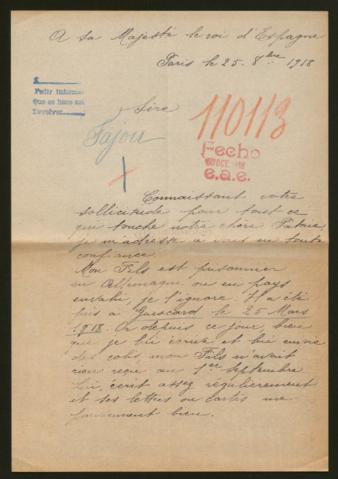 A sa Majesté le roi d'Espagne
Paris le 25. 8bre 1918
Pedir informes
Que se hace así
Devolver
Sire
110113
Tajou
Fecho
30 OCT. 1918
e.a.e.
Connaissant votre
sollicitude pour tout ce
qui touche notre chère Patrie
je m'adresse à vous en toute
confiance.
Mon Fils est prisonnier
en Allemagne ou en pays
envahi, je l'ignore. Il a été
pris à Guiscard le 25 Mars
1918. Or depuis ce jour, bien
que je lui écrive et lui envoie
des colis, mon Fils n'avait
rien reçu au 1er Septembre
Lui, écrit assez régulièrement
et ses lettres ou cartes me
parviennent bien.